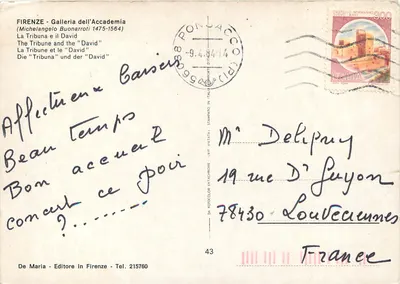 FIRENZE - Galleria dell'Accademia
(Michelangelo Buonarroti 1475-1564)
La Tribuna e il David
The Tribuna and the "David"
La Tribune et le "David"
Die "Tribuna" und der "David"
56038 PONSACCO (PI)
Affectueux Baisers
Beau temps
Bon accueil
concert ce soir
?........
Mª Delepuy
19 rue Dr Guyon
78430 Louveciennes
France
43
De Maria - Editore in Firenze - Tel. 215760